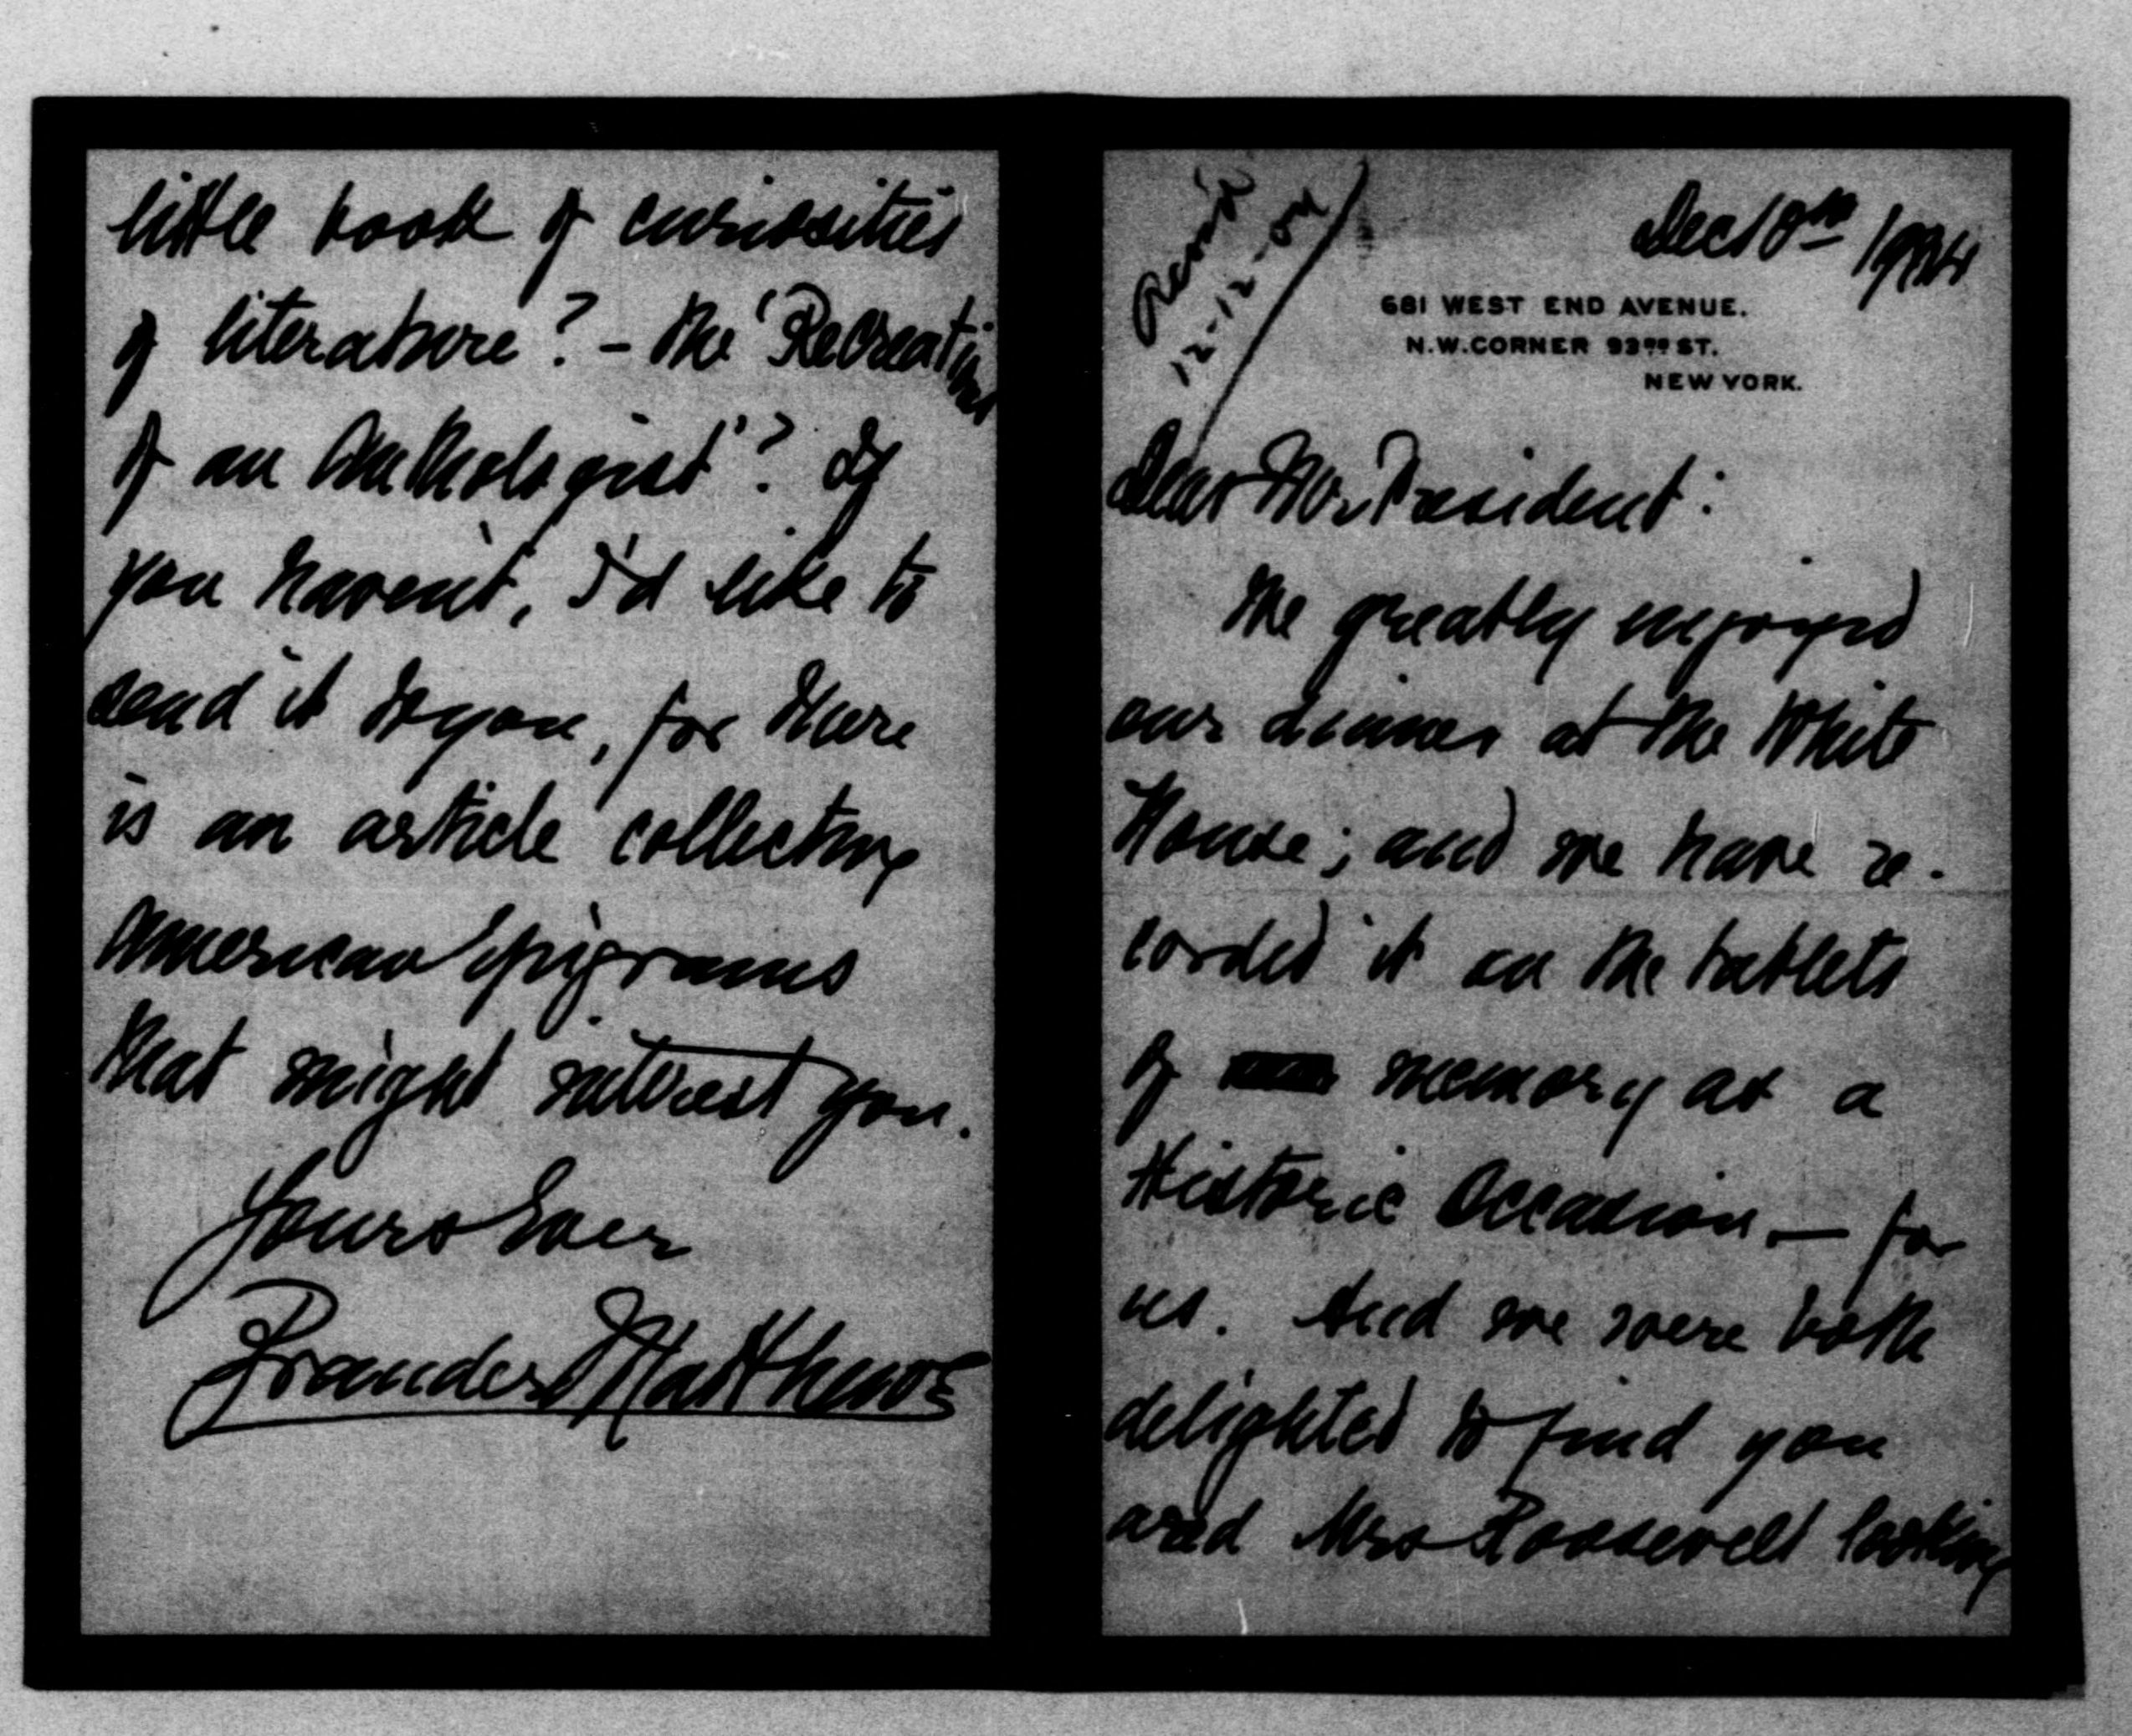 Dec 10th 1904
Recd
12-12-04
681 WEST END AVENUE.
N.W. CORNER 93RD ST.
NEW YORK.
Dear Mr. President:
We greatly enjoyed
our dinner at the White
House; and we have re-
corded it on the tablets
of memory as a
Historic Occasion — for
us. And we were both
delighted to find you
and Mrs Roosevelt looking
little book of curiosities
of literature? – the 'Recreations
of an Anthologist'? If
you haven't, I'd like to
send it to you, for there
is an article collecting
American Epigrams
that might interest you.
Yours Ever
Brander Matthews